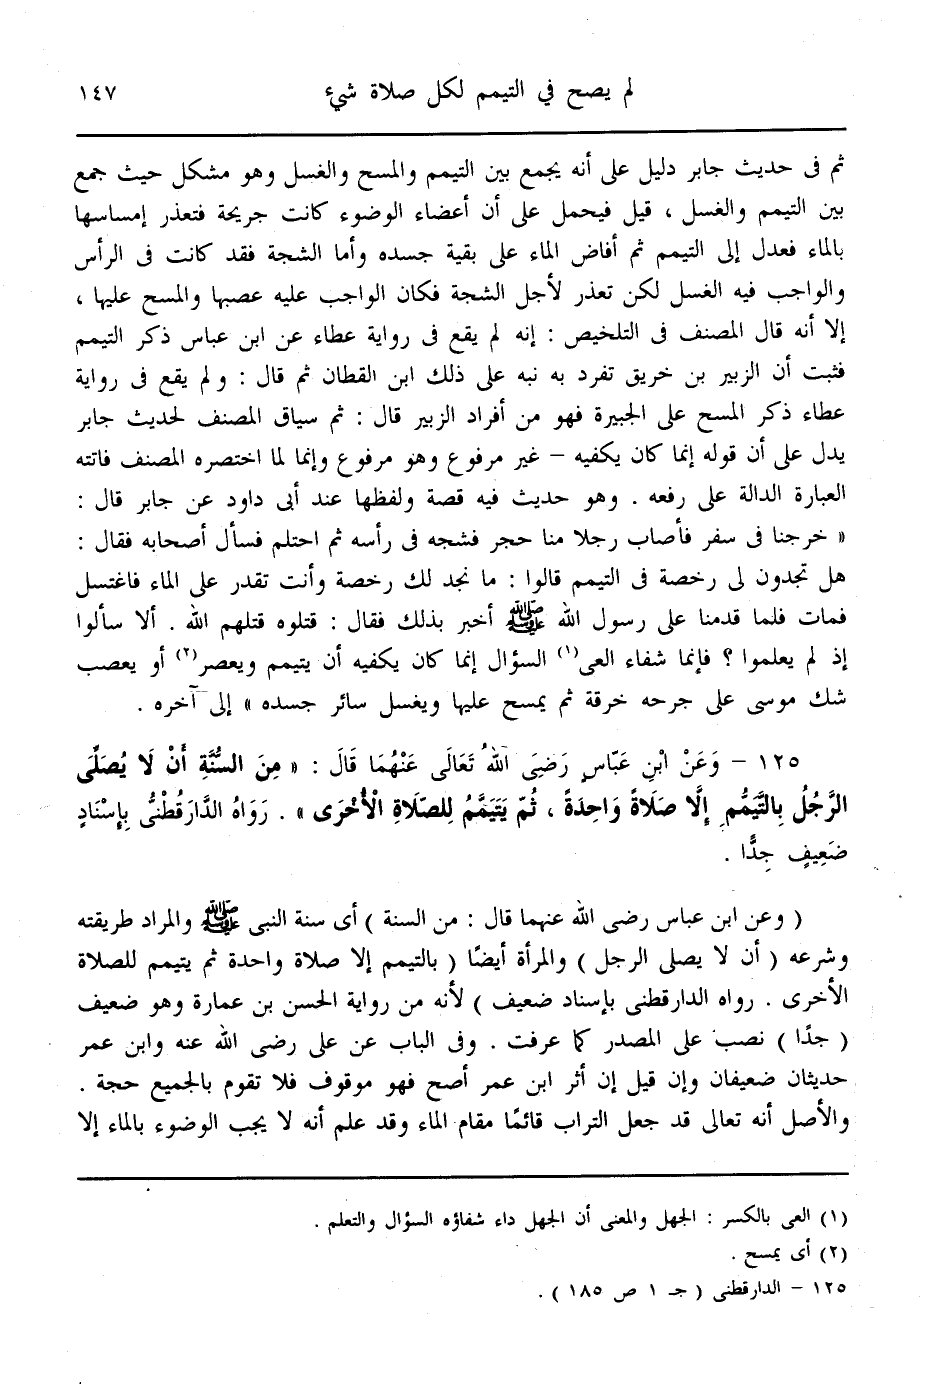 لم يصح في التيمم لكل صلاة شيء ١٤٧
ثم فى حديث جابر دليل على أنه يجمع بين التيمم والمسح والغسل وهو مشكل حيث جمع
بين التيمم والغسل ، قيل فيحمل على أن أعضاء الوضوء كانت جريحة فتعذر إمساسها
بالماء فعدل إلى التيمم ثم أفاض الماء على بقية جسده وأما الشجة فقد كانت فى الرأس
والواجب فيه الغسل لكن تعذر لأجل الشجة فكان الواجب عليه عصبها والمسح عليها ،
إلا أنه قال المصنف فى التلخيص : إنه لم يقع فى رواية عطاء عن ابن عباس ذكر التيمم
فثبت أن الزبير بن خريق تفرد به نبه على ذلك ابن القطان ثم قال : ولم يقع فى رواية
عطاء ذكر المسح على الجبيرة فهو من أفراد الزبير قال : ثم سياق المصنف لحديث جابر
يدل على أن قوله إنما كان يكفيه – غير مرفوع وهو مرفوع وإنما لما اختصره المصنف فاتته
العبارة الدالة على رفعه . وهو حديث فيه قصة ولفظها عند أبى داود عن جابر قال :
« خرجنا فى سفر فأصاب رجلا منا حجر فشجه فى رأسه ثم احتلم فسأل أصحابه فقال :
هل تجدون لى رخصة فى التيمم قالوا : ما نجد لك رخصة وأنت تقدر على الماء فاغتسل
فمات فلما قدمنا على رسول الله ﷺ أخبر بذلك فقال : قتلوه قتلهم الله . ألا سألوا
إذ لم يعلموا ؟ فإنما شفاء العى(١) السؤال إنما كان يكفيه أن يتيمم ويعصر(٢) أو يعصب
شك موسى على جرحه خرقة ثم يمسح عليها ويغسل سائر جسده » إلى آخره .
١٢٥ – وَعَنْ ابْنِ عَبَّاسٍ رَضِيَ اللهُ تَعَالَى عَنْهُمَا قَالَ : « مِنَ السُّنَّةِ أَنْ لَا يُصَلِّى
الرَّجُلُ بِالتَّيَمُّمِ إِلَّا صَلَاةً وَاحِدَةً ، ثُمَّ يَتَيَمَّمُ لِلصَّلَاةِ الْأُخْرَى » . رَوَاهُ الدَّارَقُطْنِىُّ بِإِسْنَادٍ
ضَعِيفٍ جِدًّا .
( وعن ابن عباس رضى الله عنهما قال : من السنة ) أى سنة النبى ﷺ والمراد طريقته
وشرعه ( أن لا يصلى الرجل ) والمرأة أيضًا ( بالتيمم إلا صلاة واحدة ثم يتيمم للصلاة
الأخرى . رواه الدارقطنى بإسناد ضعيف ) لأنه من رواية الحسن بن عمارة وهو ضعيف
( جدًا ) نصب على المصدر كما عرفت . وفى الباب عن على رضى الله عنه وابن عمر
حديثان ضعيفان وإن قيل إن أثر ابن عمر أصح فهو موقوف فلا تقوم بالجميع حجة .
والأصل أنه تعالى قد جعل التراب قائمًا مقام الماء وقد علم أنه لا يجب الوضوء بالماء إلا
(١) العى بالكسر : الجهل والمعنى أن الجهل داء شفاؤه السؤال والتعلم .
(٢) أى يمسح .
١٢٥ – الدارقطنى ( جـ ١ ص ١٨٥ ) .